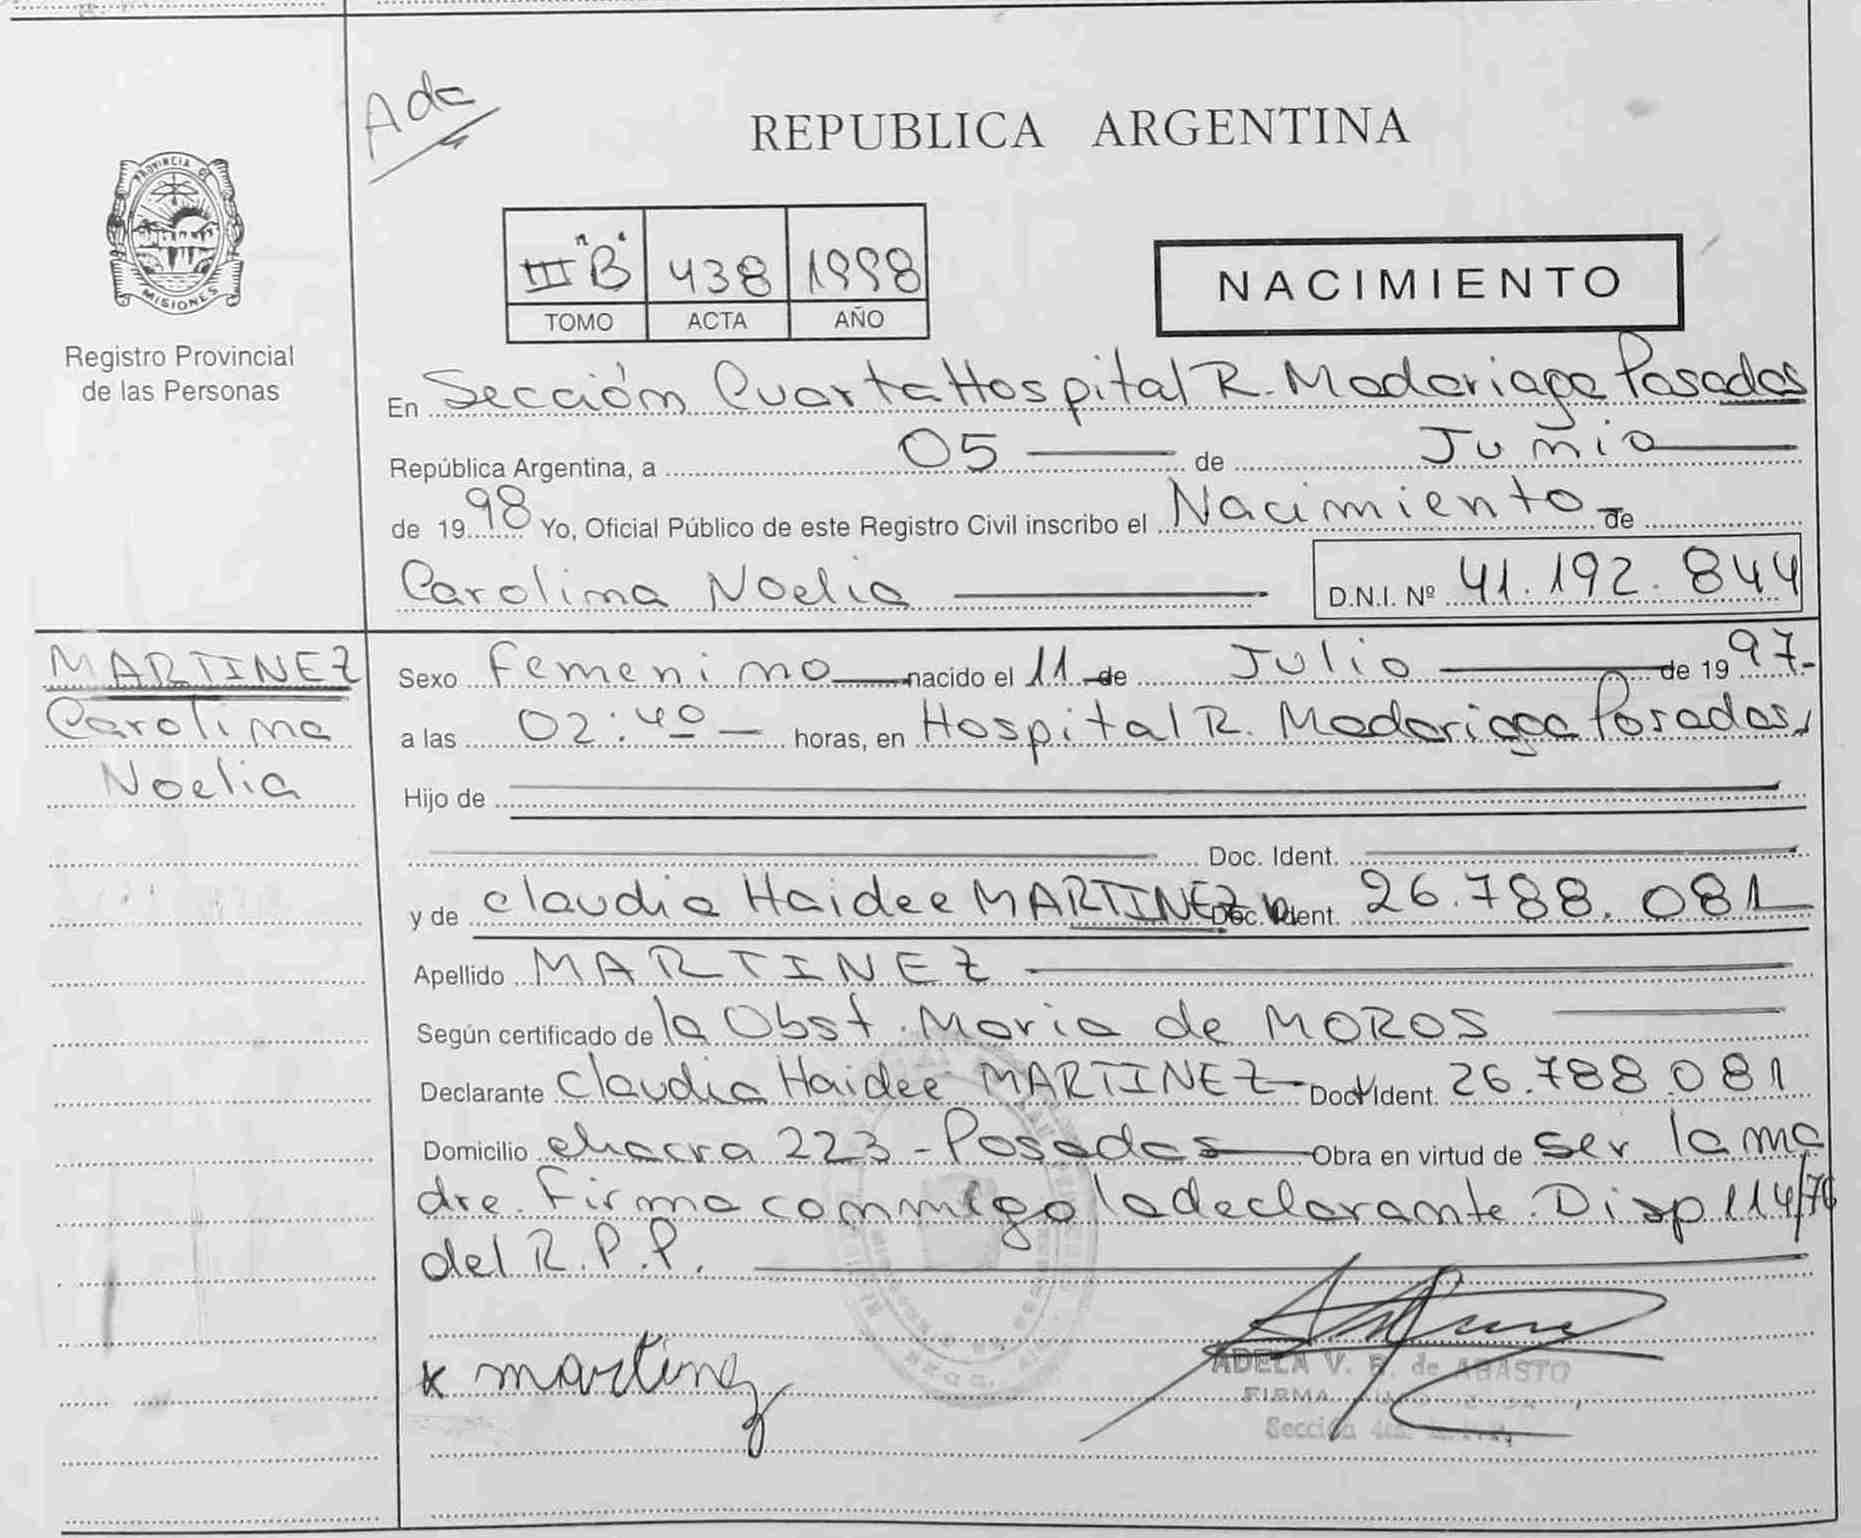 Ada
REPUBLICA ARGENTINA
PROVINCIA DE
MISIONES
Registro Provincial
de las Personas
III "B" 438 1998
TOMO ACTA AÑO
NACIMIENTO
En Sección Cuarta Hospital R. Madariaga Posadas
República Argentina, a 05 de Junio
de 1998 Yo, Oficial Público de este Registro Civil inscribo el Nacimiento de
Carolina Noelia D.N.I. Nº 41.192.844
MARTINEZ
Carolina
Noelia
Sexo Femenino nacido el 11 de Julio de 1997-
a las 02:40 horas, en Hospital R. Madariaga Posadas
Hijo de
Doc. Ident.
y de Claudia Haidee MARTINEZ Doc. Ident. 26.788.081
Apellido MARTINEZ
Según certificado de la Obst. Maria de MOROS
Declarante Claudia Haidee MARTINEZ Doc. Ident. 26.788.081
Domicilio chacra 223 - Posadas Obra en virtud de ser la ma
dre. Firma conmigo la declarante. Disp 114/76
del R.P.P.
x martinez
ADELA V. B. de ABASTO
FIRMA
Sección 4ta.